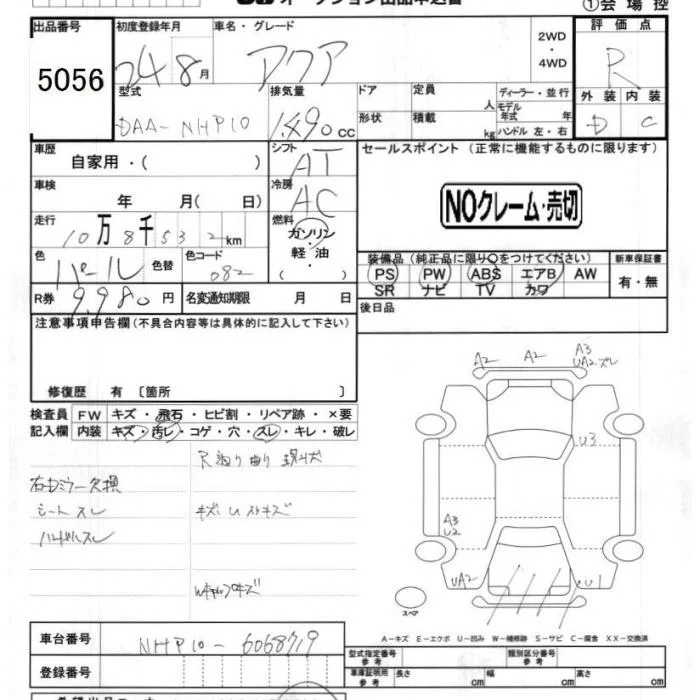 オークション出品申込書 ①会場控
出品番号 初度登録年月 車名・グレード 評価点
5056 24 8月 アクア 2WD ・ 4WD R
型式 排気量 ドア 定員 人 ディーラー・並行 外装 内装
DAA-NHP10 1490cc 形状 積載 kg モデル年式 年 D C
ハンドル 左・右
車歴 シフト セールスポイント (正常に機能するものに限ります)
自家用・( ) AT
車検 冷房
年 月( 日) AC NOクレーム・売切
走行 燃料
10万8千532km ガソリン・軽油・( )
色 カラーコード 装備品(純正品に限り○をつけてください) 新車保証書
パール 色替 082 PS PW ABS エアB AW 有・無
SR ナビ TV カワ
R券 9,980円 名変通知期限 月 日 後日品
注意事項申告欄(不具合内容等は具体的に記入して下さい)
修復歴 有〔箇所 〕
A2 A2 A3
UA2スレ
検査員 FW キズ・飛石・ヒビ割・リペア跡・×要
記入欄 内装 キズ・汚レ・コゲ・穴・スレ・キレ・破レ
U3
右Dミラー欠損
シート スレ
ハンドルスレ
A3
U2
UA2 U1
スペア
A-キズ E-エクボ U-凹み W-補修跡 S-サビ C-腐食 XX-交換済
車台番号 NHP10-6068719 型式指定番号 参考 類別区分番号 参考
登録番号 車庫証明用 参考 長さ cm 幅 cm 高さ cm